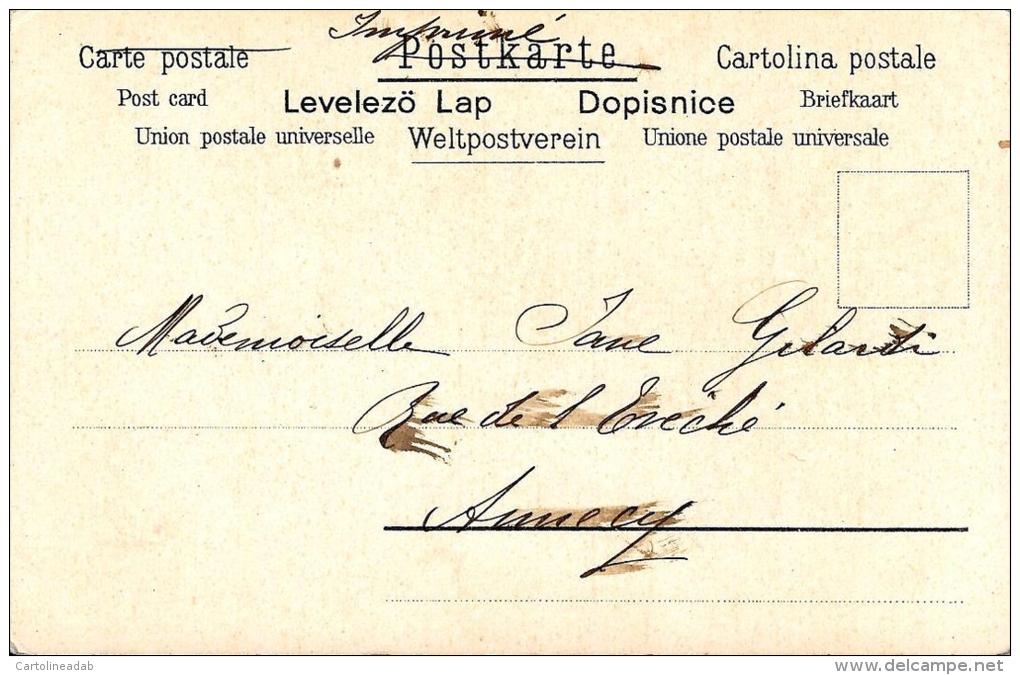 Imprimé
Carte postale Postkarte Cartolina postale
Post card Levelezö Lap Dopisnice Briefkaart
Union postale universelle Weltpostverein Unione postale universale
Mademoiselle Jane Gilardi
Rue de l'Evêché
Annecy
Cartolineadab
www.delcampe.net